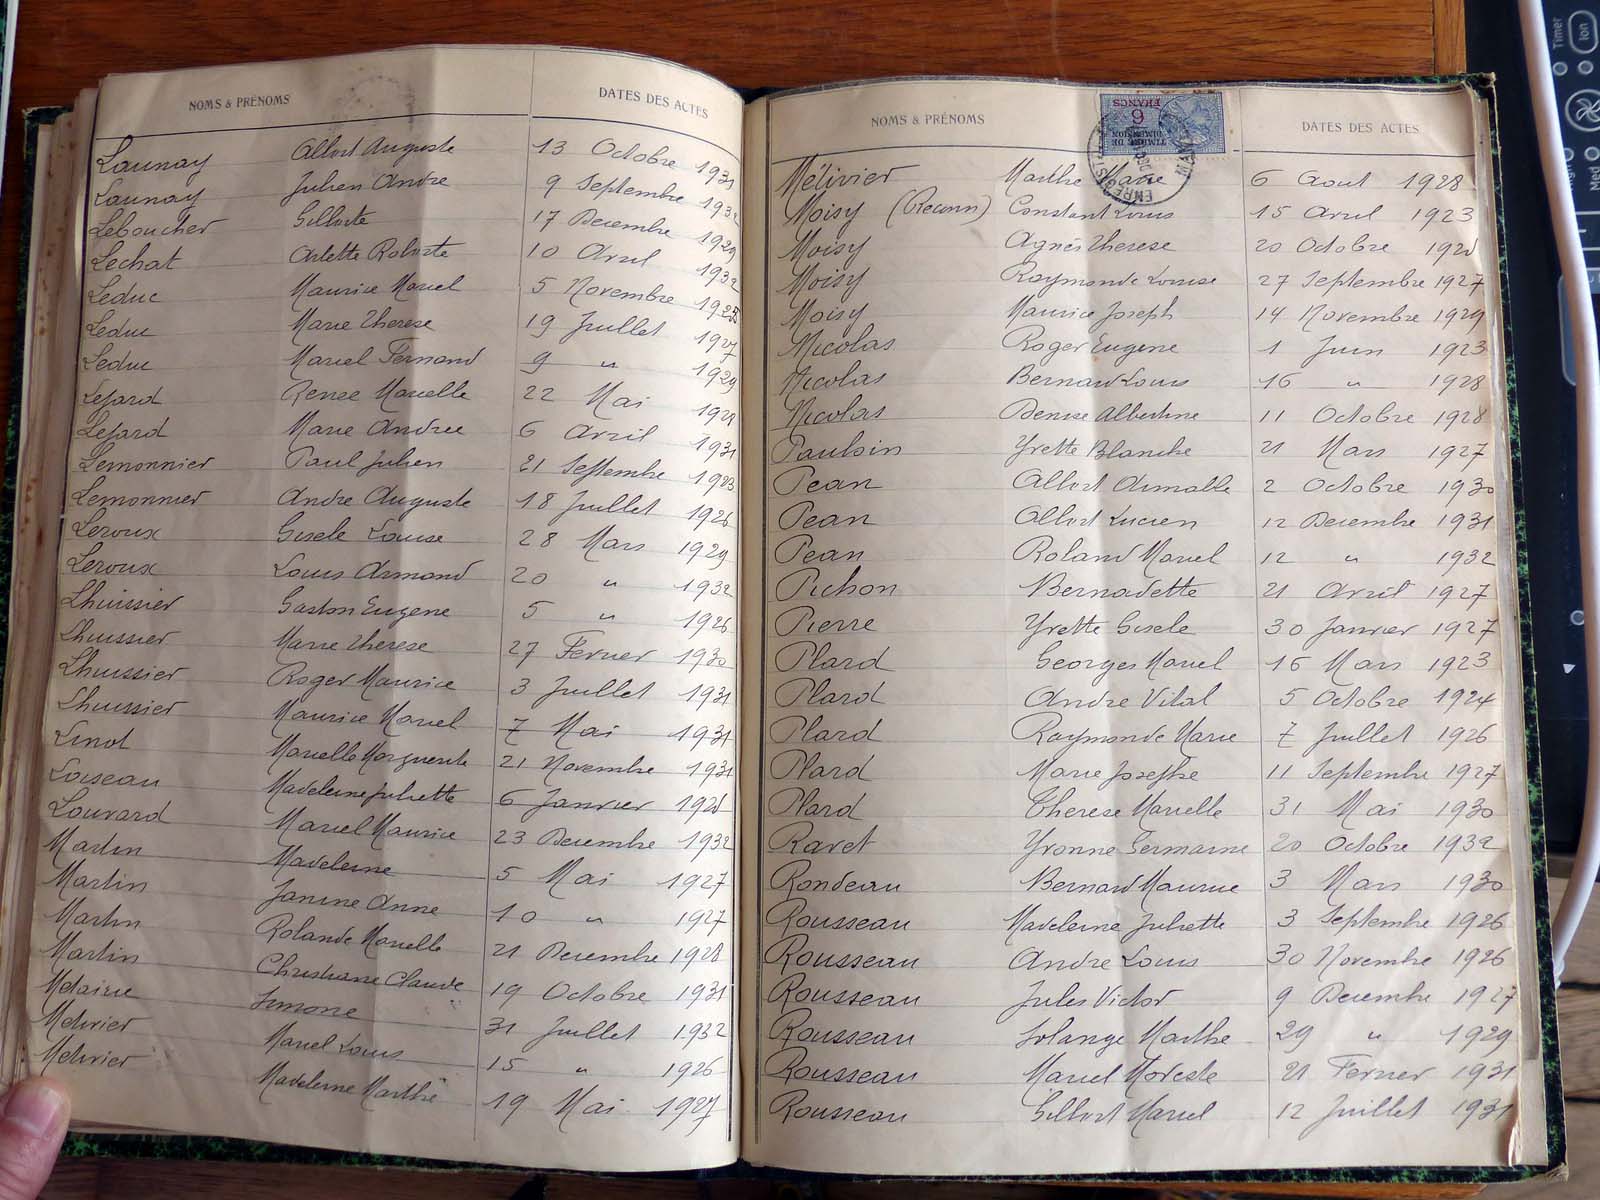 NOMS & PRÉNOMS DATES DES ACTES
Launay Albert Auguste 13 Octobre 1931
Launay Julien Andre 9 Septembre 1932
Leboucher Gilberte 17 Decembre 1929
Lechat Arlette Roberte 10 Avril 1932
Leduc Maurice Marcel 5 Novembre
Leduc Marie Therese 19 Juillet 1927
Leduc Marcel Fernand 9 " 1929
Lejard Renee Marcelle 22 Mai
Lejard Marie Andree 6 Avril 1931
Lemonnier Paul Julien 21 Septembre 1923
Lemonnier Andre Auguste 18 Juillet 1926
Leroux Gisele Louise 28 Mars 1929
Leroux Louis Armand 20 " 1932
Lhuissier Gaston Eugene 5 " 1926
Lhuissier Marie Therese 27 Fevrier 1930
Lhuissier Roger Maurice 3 Juillet 1931
Lhuissier Maurice Marcel 7 Mai 1931
Linot Marcelle Marguerite 21 Novembre 1931
Loiseau Madeleine Juliette 6 Janvier
Louvard Marcel Maurice 23 Decembre 1932
Martin Madeleine 5 Mai 1927
Martin Janine Anne 10 " 1927
Martin Rolande Marcelle 21 Decembre 1928
Martin Christiane Claude 19 Octobre 1931
Metairie Simone 31 Juillet 1932
Metivier Marcel Louis 15 " 1926
Metivier Madeleine Marthe 19 Mai 1927
NOMS & PRÉNOMS DATES DES ACTES
6 FRANCS
TIMBRE DE DIMENSION
Métivier Marthe Marie 6 Aout 1928
Moisy (Reconn) Constant Louis 15 Avril 1923
Moisy Agnès Therese 20 Octobre
Moisy Raymonde Louise 27 Septembre 1927
Moisy Maurice Joseph 14 Novembre 1929
Nicolas Roger Eugene 1 Juin 1923
Nicolas Bernard Louis 16 " 1928
Nicolas Denise Albertine 11 Octobre 1928
Pauloin Yvette Blanche 21 Mars 1927
Pean Albert Armable 2 Octobre 1930
Pean Albert Lucien 12 Decembre 1931
Pean Roland Marcel 12 " 1932
Pichon Bernadette 21 Avril 1927
Pierre Yvette Gisele 30 Janvier 1927
Plard Georges Marcel 16 Mars 1923
Plard Andre Vital 5 Octobre 1924
Plard Raymonde Marie 7 Juillet 1926
Plard Marie Josephe 11 Septembre 1927
Plard Therese Marcelle 31 Mai 1930
Ravet Yvonne Germaine 20 Octobre 1932
Rondeau Bernard Maurice 3 Mars 1930
Rousseau Madeleine Juliette 3 Septembre 1926
Rousseau Andre Louis 30 Novembre 1926
Rousseau Jules Victor 9 Decembre 1927
Rousseau Solange Marthe 29 " 1929
Rousseau Marcel Modeste 21 Fevrier 1931
Rousseau Gilbert Marcel 12 Juillet 1931
Timer
Ion
Med